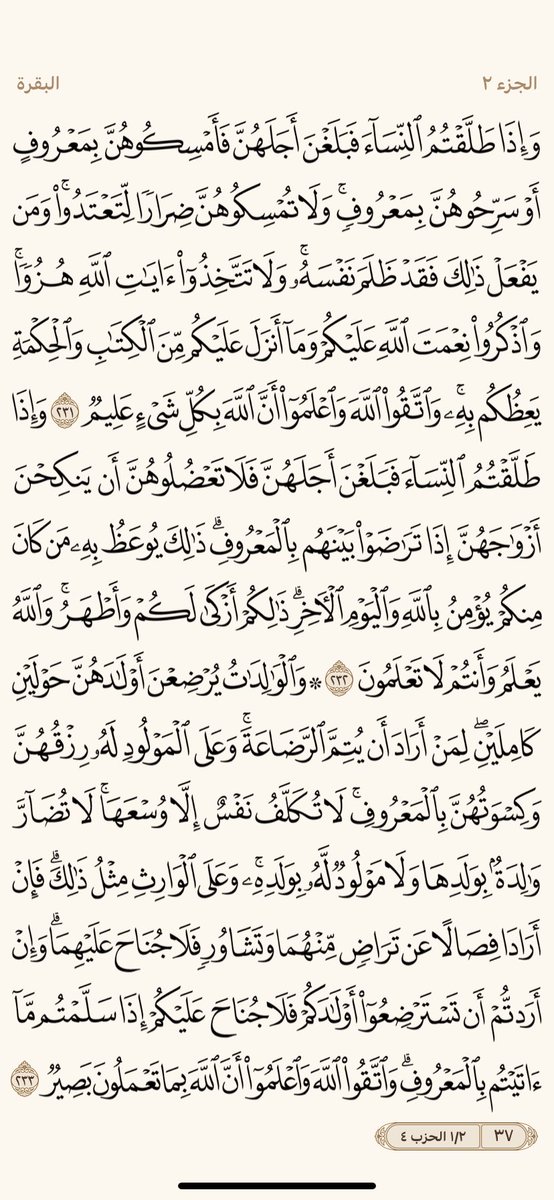 الجزء ٢
البقرة
وَإِذَا طَلَّقْتُمُ ٱلنِّسَآءَ فَبَلَغْنَ أَجَلَهُنَّ فَأَمْسِكُوهُنَّ بِمَعْرُوفٍ
أَوْ سَرِّحُوهُنَّ بِمَعْرُوفٍۚ وَلَا تُمْسِكُوهُنَّ ضِرَارًا لِّتَعْتَدُوا۟ۚ وَمَن
يَفْعَلْ ذَٰلِكَ فَقَدْ ظَلَمَ نَفْسَهُۥۚ وَلَا تَتَّخِذُوٓا۟ ءَايَٰتِ ٱللَّهِ هُزُوًاۚ
وَٱذْكُرُوا۟ نِعْمَتَ ٱللَّهِ عَلَيْكُمْ وَمَآ أَنزَلَ عَلَيْكُم مِّنَ ٱلْكِتَٰبِ وَٱلْحِكْمَةِ
يَعِظُكُم بِهِۦۚ وَٱتَّقُوا۟ ٱللَّهَ وَٱعْلَمُوٓا۟ أَنَّ ٱللَّهَ بِكُلِّ شَىْءٍ عَلِيمٌ ٢٣١ وَإِذَا
طَلَّقْتُمُ ٱلنِّسَآءَ فَبَلَغْنَ أَجَلَهُنَّ فَلَا تَعْضُلُوهُنَّ أَن يَنكِحْنَ
أَزْوَٰجَهُنَّ إِذَا تَرَٰضَوْا۟ بَيْنَهُم بِٱلْمَعْرُوفِۗ ذَٰلِكَ يُوعَظُ بِهِۦ مَن كَانَ
مِنكُمْ يُؤْمِنُ بِٱللَّهِ وَٱلْيَوْمِ ٱلْءَاخِرِۗ ذَٰلِكُمْ أَزْكَىٰ لَكُمْ وَأَطْهَرُۚ وَٱللَّهُ
يَعْلَمُ وَأَنتُمْ لَا تَعْلَمُونَ ٢٣٢ ۞ وَٱلْوَٰلِدَٰتُ يُرْضِعْنَ أَوْلَٰدَهُنَّ حَوْلَيْنِ
كَامِلَيْنِۖ لِمَنْ أَرَادَ أَن يُتِمَّ ٱلرَّضَاعَةَۚ وَعَلَى ٱلْمَوْلُودِ لَهُۥ رِزْقُهُنَّ
وَكِسْوَتُهُنَّ بِٱلْمَعْرُوفِۚ لَا تُكَلَّفُ نَفْسٌ إِلَّا وُسْعَهَاۚ لَا تُضَآرَّ
وَٰلِدَةٌۢ بِوَلَدِهَا وَلَا مَوْلُودٌ لَّهُۥ بِوَلَدِهِۦۚ وَعَلَى ٱلْوَارِثِ مِثْلُ ذَٰلِكَۗ فَإِنْ
أَرَادَا فِصَالًا عَن تَرَاضٍ مِّنْهُمَا وَتَشَاوُرٍ فَلَا جُنَاحَ عَلَيْهِمَاۗ وَإِنْ
أَرَدتُّمْ أَن تَسْتَرْضِعُوٓا۟ أَوْلَٰدَكُمْ فَلَا جُنَاحَ عَلَيْكُمْ إِذَا سَلَّمْتُم مَّآ
ءَاتَيْتُم بِٱلْمَعْرُوفِۗ وَٱتَّقُوا۟ ٱللَّهَ وَٱعْلَمُوٓا۟ أَنَّ ٱللَّهَ بِمَا تَعْمَلُونَ بَصِيرٌ ٢٣٣
٣٧ ١/٢ الحزب ٤